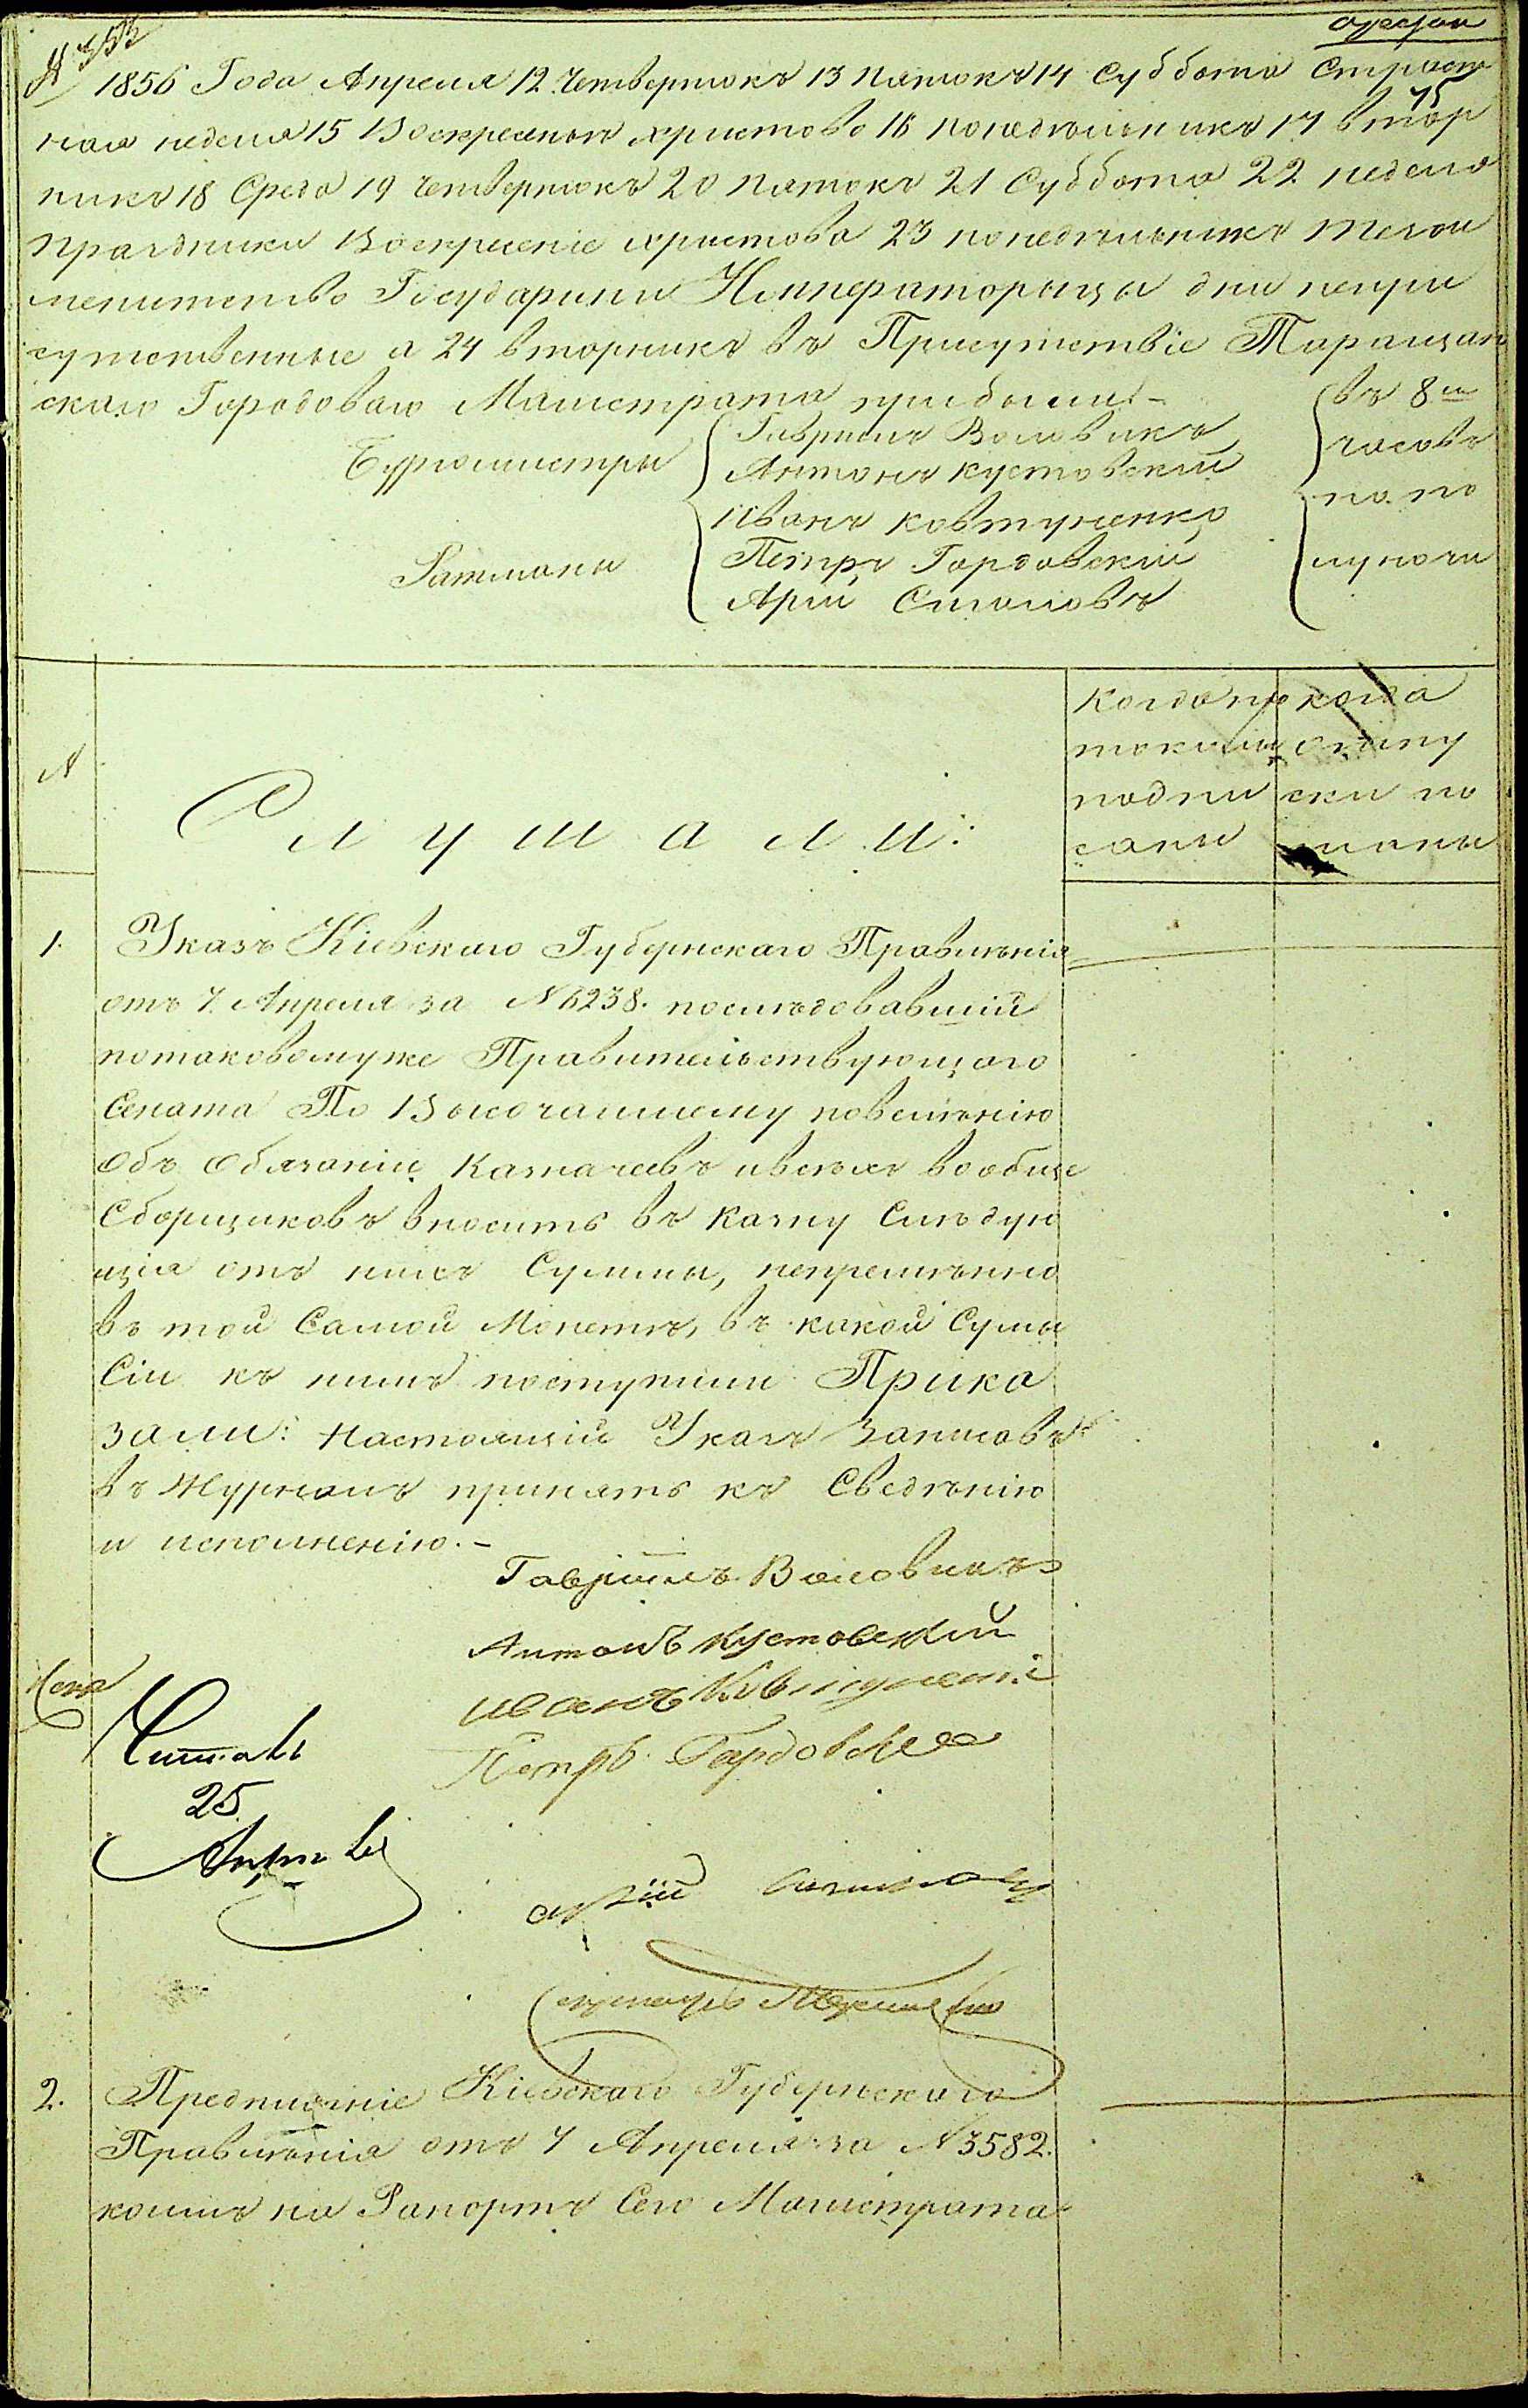 1856 Года Апреля 12 Четвертокъ 13 Пятокъ 14 Суббота Страст
75
ная неделя 15 Воскресенье христово 16 понедѣльникъ 17 втор
никъ 18 Среда 19 Четвертокъ 20 Пятокъ 21 Суббота 22 неделя
Праздники Воскресеніе христова 23 понедѣльникъ Тезои
менитство Государини Императорыцы дни непри
сутственные а 24 вторникъ въ Присутствіе Таращан
скаго Городоваго Магистрата прибыли:-
Бургомистры
Гавріилъ Воловикъ
Антонъ Кустовскій
Ратманы
Иванъ Ковтуненко
Петръ Гордовскій
Арій
въ 8
часовъ
по по
луночи
№
Слушали:
Когда про
токолы
подпи
саны
когда
отпу
ски по
сланы
1.
Указъ Кіевскаго Губернскаго Правленія
отъ 7 Апреля за № 6238. послѣдовавшій
потаковомуже Правительствующаго
Сената По Высочайшему повелѣнію
Объ Обязаніи Казначеевъ ивсехъ вообще
Сборщиковъ вносить въ Казну Слѣдую
щія отъ нихъ Суммы, непремѣнно
въ той Самой Монетѣ, въ какой Сумы
Сіи къ нимъ поступили Прика
зали: Настоящій Указъ Записавъ
въ Журналъ принять къ Сведѣнію
и исполненію.-
Гавріилъ Воловикъ
Антонъ Кустовский
иванъ
Петръ Гордовски
Читалъ
25
арій
Секретарь
2.
Предписаніе Кіевскаго Губернскаго
Правленія отъ 7 Апреля за № 3582.
коимъ на Рапортъ Сего Магистрата